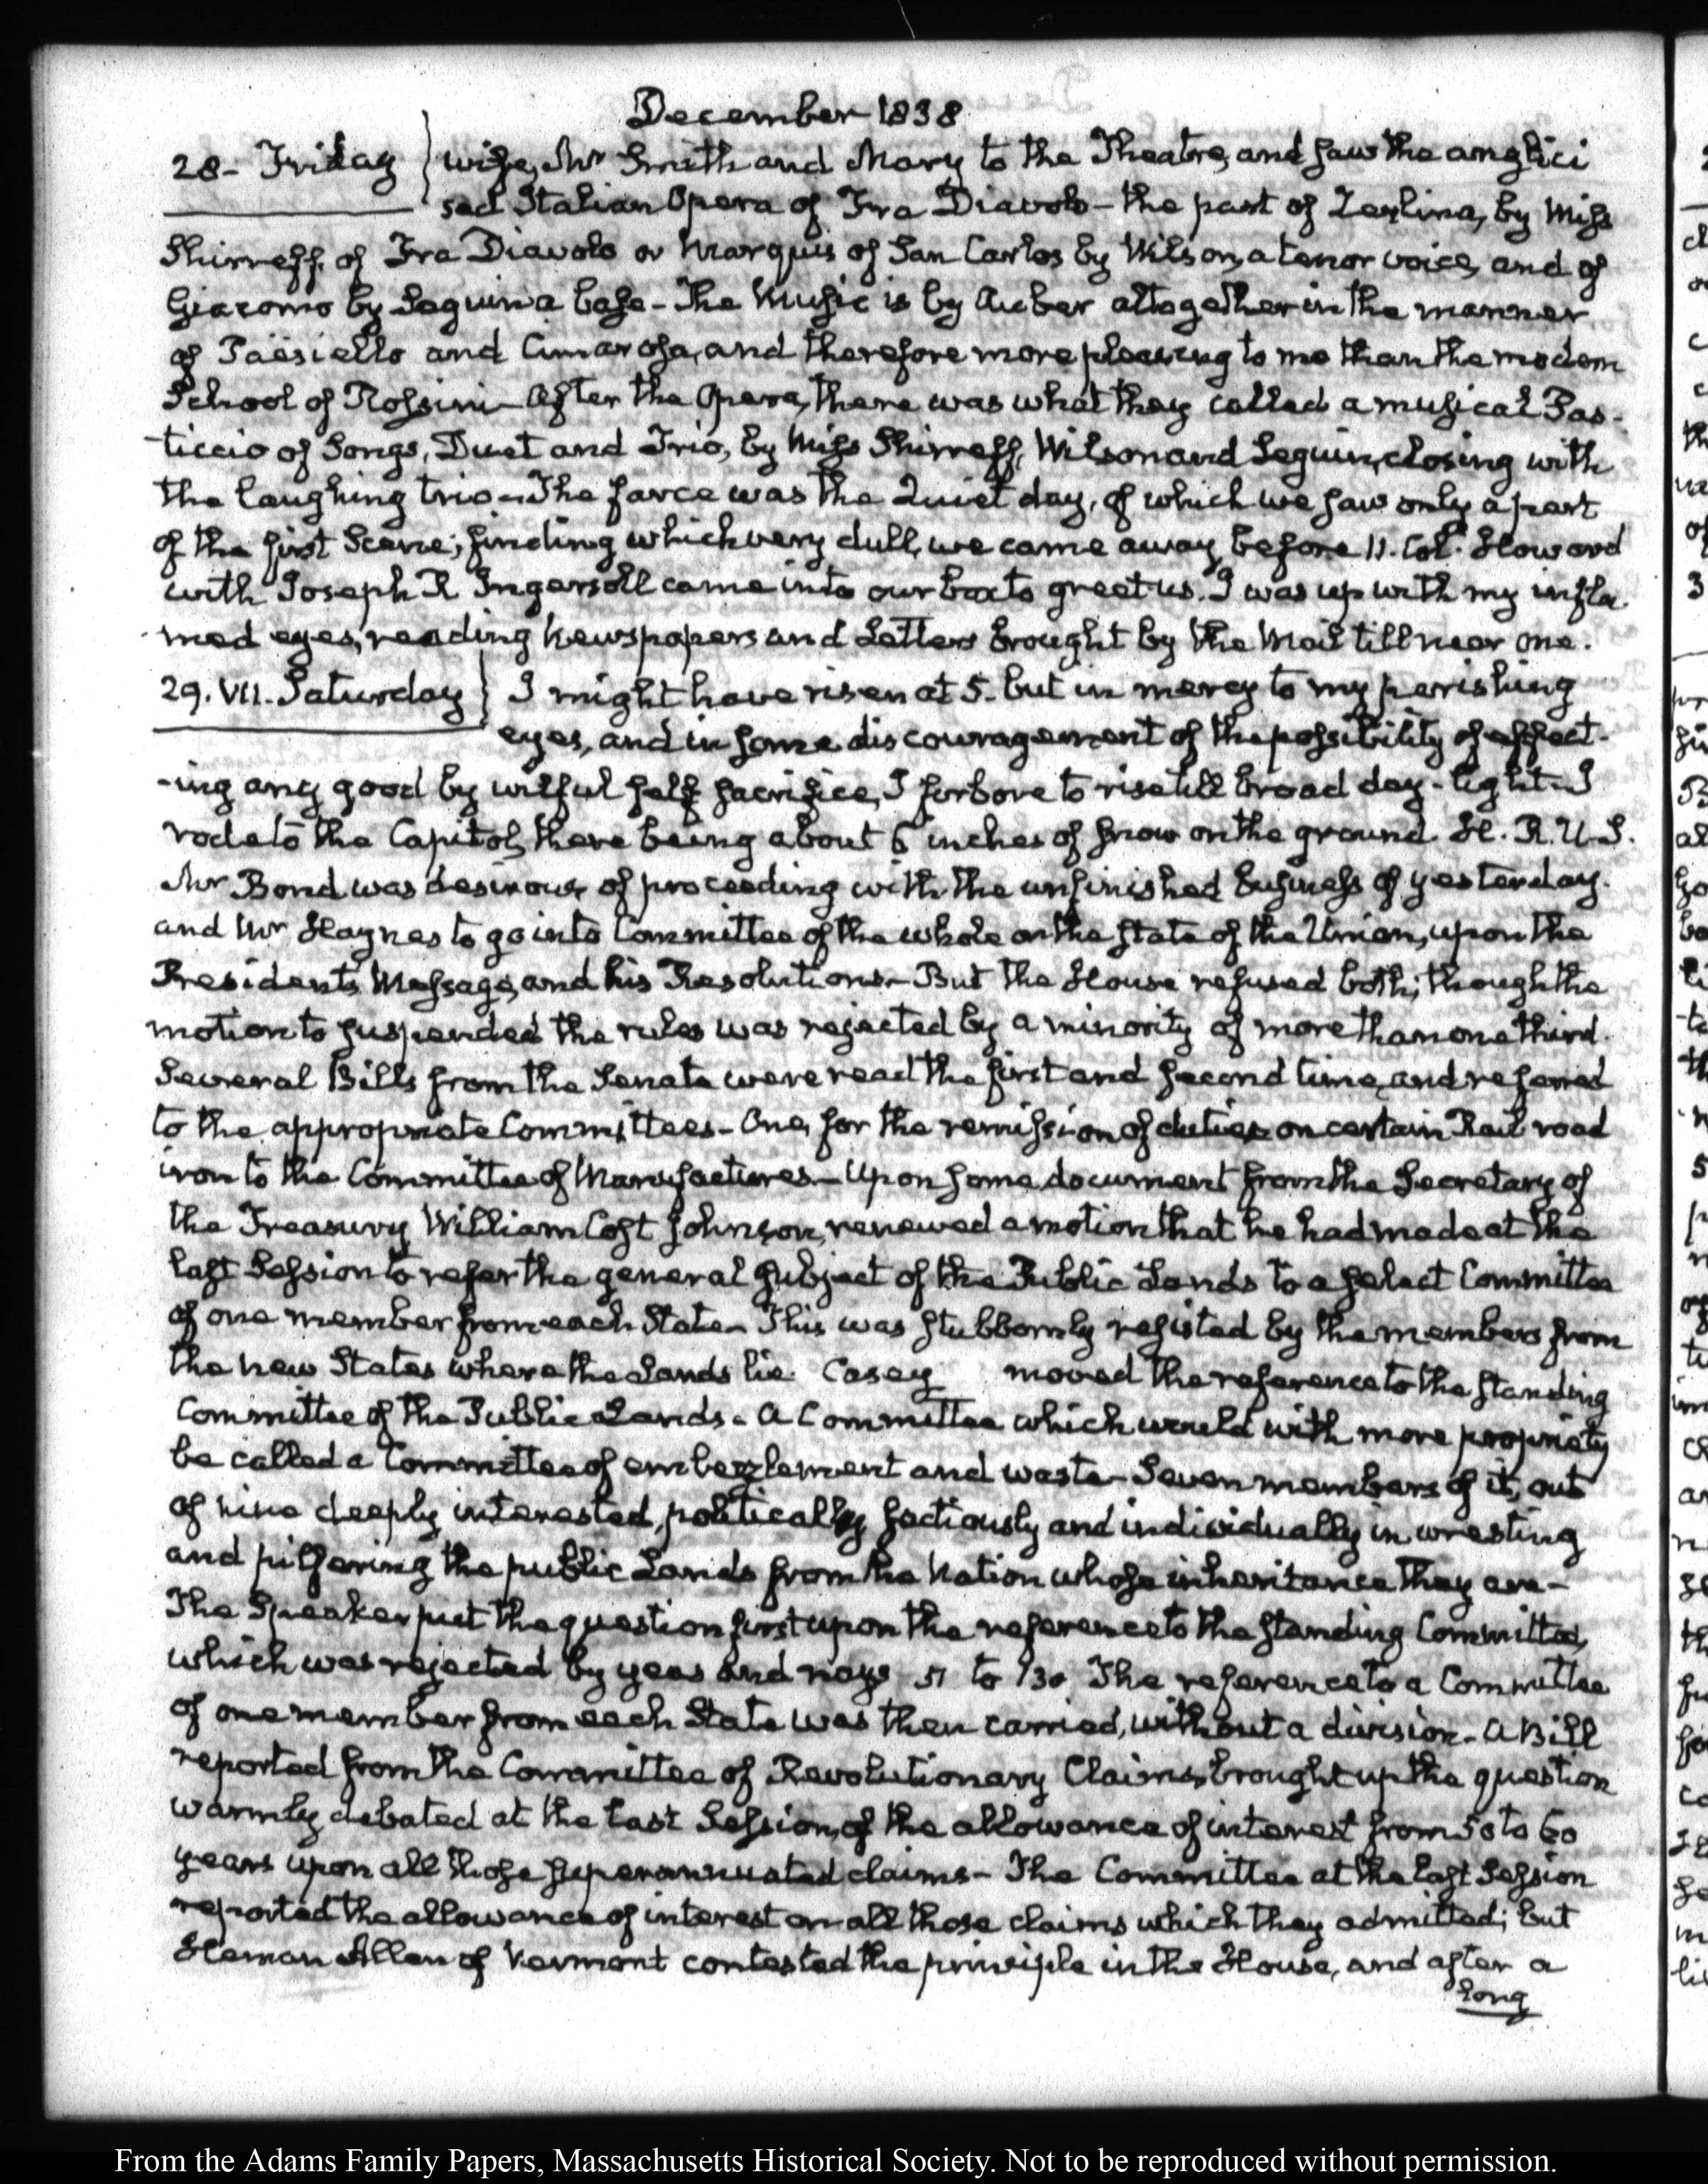 December 1838
28- Friday } wife, Mr Smith and Mary to the Theatre, and saw the anglici
sed Italian Opera of Fra Diavolo - the part of Zerlina, by Miss
Shirreff, of Fra Diavolo or Marquis of San Carlos by Wilson, a tenor voice, and of
Giacomo by Seguin a base - The Music is by Auber altogether in the manner
of Päesiello and Cimarosa, and therefore more pleasing to me than the modern
School of Rossini - After the Opera, there was what they called a musical Pas-
ticcio of Songs, Duet and Trio, by Miss Shirreff, Wilson and Seguin, closing with
the laughing trio - The farce was the Quiet day, of which we saw only a part
of the first Scene; finding which very dull, we came away before 11. Col. Howard
with Joseph R Ingersoll came into our box to greet us. I was up with my infla-
med eyes, reading Newspapers and Letters brought by the Mail till near one.
29. VII. Saturday } I might have risen at 5. but in mercy to my perishing
eyes, and in some discouragement of the possibility of effect-
-ing any good by wilful self sacrifice, I forbore to rise till broad day-light - I
rode to the Capitol, there being about 6 inches of snow on the ground. H. R. U.S.
Mr Bond was desirous of proceeding with the unfinished business of yesterday.
and Mr Haynes to go into Committee of the whole on the state of the Union, upon the
President's Message, and his Resolutions - But the House refused both; though the
motion to suspended the rules was rejected by a minority of more than one third.
Several Bills from the Senate were read the first and second time, and referred
to the appropriate Committees - One, for the remission of duties on certain Rail road
iron to the Committee of Manufactures - Upon some document from the Secretary of
the Treasury William Cost Johnson, renewed a motion that he had made at the
last Session to refer the general subject of the Public Lands to a select Committee
of one member from each State - This was stubbornly resisted by the members from
the new States where the Lands lie. Casey moved the reference to the standing
Committee of the Public Lands - A Committee which would with more propriety
be called a Committee of embezzlement and waste - Seven members of it, out
of nine deeply interested, politically factiously and individually in wresting
and pilfering the public Lands from the Nation whose inheritance they are -
The Speaker put the question first upon the reference to the standing Committee,
which was rejected by yeas and nays 51 to 130 The reference to a Committee
of one member from each State was then carried, without a division - A Bill
reported from the Committee of Revolutionary Claims, brought up the question
warmly debated at the last Session, of the allowance of interest from 50 to 60
years upon all those superannuated claims - The Committee at the last Session
reported the allowance of interest on all those claims which they admitted; but
Heman Allen of Vermont contested the principle in the House, and after a
long
From the Adams Family Papers, Massachusetts Historical Society. Not to be reproduced without permission.